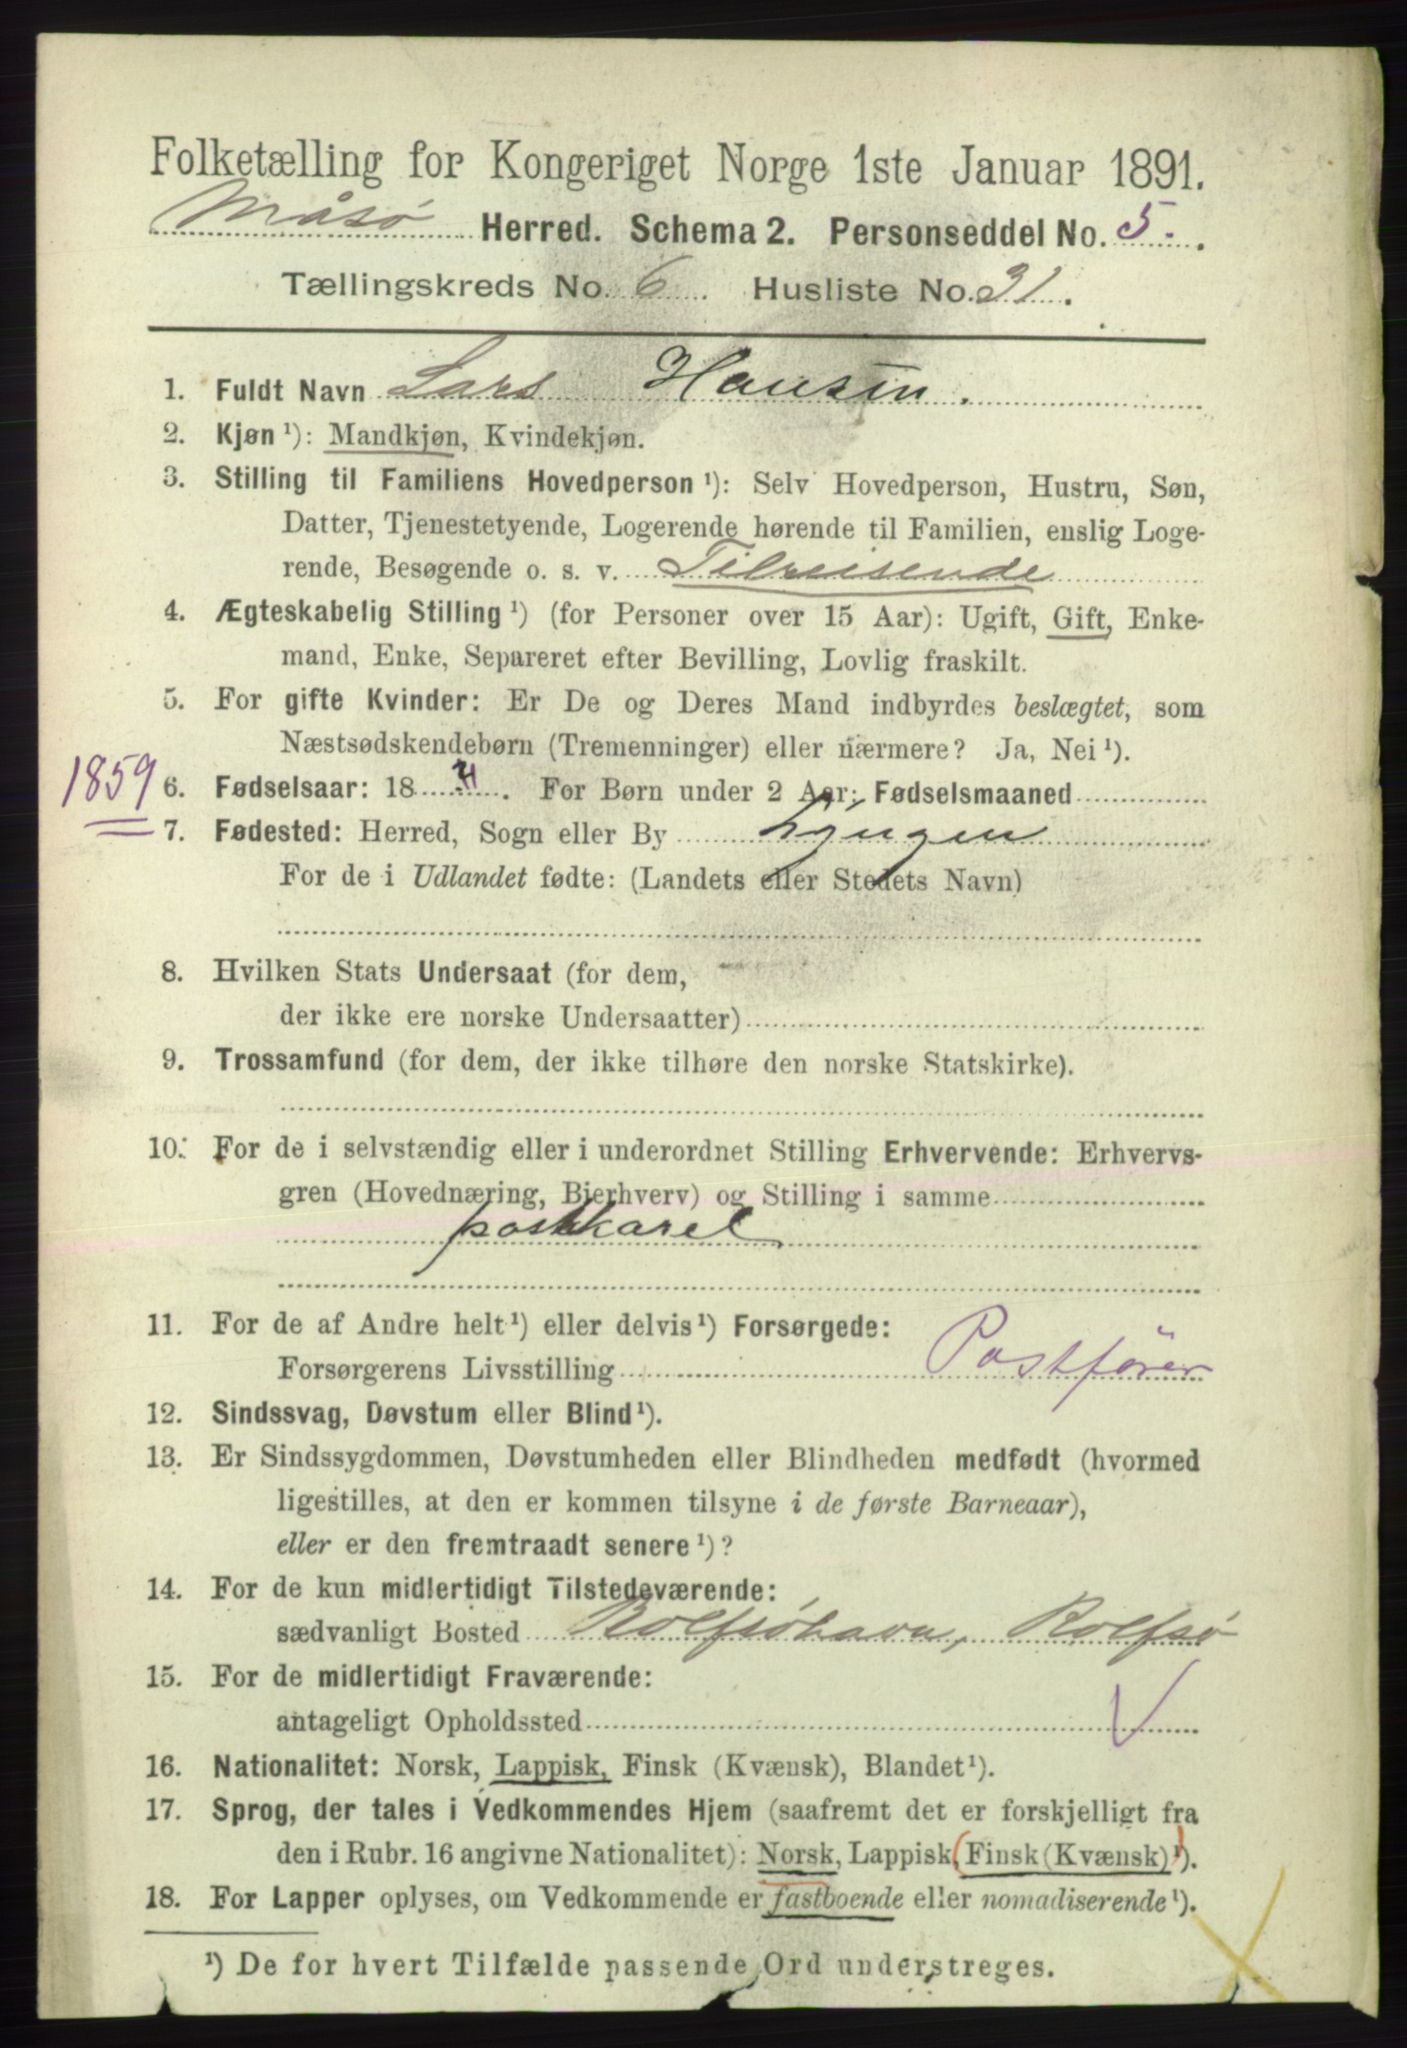 Folketælling for Kongeriget Norge 1ste Januar 1891.
Måsø Herred. Schema 2. Personseddel No. 5.
Tællingskreds No. 6. Husliste No. 31.
1. Fuldt Navn Lars Hansen.
2. Kjøn ¹): Mandkjøn, Kvindekjøn.
3. Stilling til Familiens Hovedperson ¹): Selv Hovedperson, Hustru, Søn,
Datter, Tjenestetyende, Logerende hørende til Familien, enslig Loge-
rende, Besøgende o. s. v. Tilreisende
4. Ægteskabelig Stilling ¹) (for Personer over 15 Aar): Ugift, Gift, Enke-
mand, Enke, Separeret efter Bevilling, Lovlig fraskilt.
5. For gifte Kvinder: Er De og Deres Mand indbyrdes beslægtet, som
Næstsødskendebørn (Tremenninger) eller nærmere? Ja, Nei ¹).
1859 6. Fødselsaar: 18 . For Børn under 2 Aar: Fødselsmaaned
7. Fødested: Herred, Sogn eller By Lyngen
For de i Udlandet fødte: (Landets eller Stedets Navn)
8. Hvilken Stats Undersaat (for dem,
der ikke ere norske Undersaatter)
9. Trossamfund (for dem, der ikke tilhøre den norske Statskirke).
10. For de i selvstændig eller i underordnet Stilling Erhvervende: Erhvervs-
gren (Hovednæring, Bierhverv) og Stilling i samme
postkarel
11. For de af Andre helt ¹) eller delvis ¹) Forsørgede:
Forsørgerens Livsstilling Postfører
12. Sindssvag, Døvstum eller Blind ¹).
13. Er Sindssygdommen, Døvstumheden eller Blindheden medfødt (hvormed
ligestilles, at den er kommen tilsyne i de første Barneaar),
eller er den fremtraadt senere ¹)?
14. For de kun midlertidigt Tilstedeværende:
sædvanligt Bosted Rolfsøhavn, Rolfsø
15. For de midlertidigt Fraværende:
antageligt Opholdssted
16. Nationalitet: Norsk, Lappisk, Finsk (Kvænsk), Blandet ¹).
17. Sprog, der tales i Vedkommendes Hjem (saafremt det er forskjelligt fra
den i Rubr. 16 angivne Nationalitet): Norsk, Lappisk, Finsk (Kvænsk) ¹).
18. For Lapper oplyses, om Vedkommende er fastboende eller nomadiserende ¹).
¹) De for hvert Tilfælde passende Ord understreges.